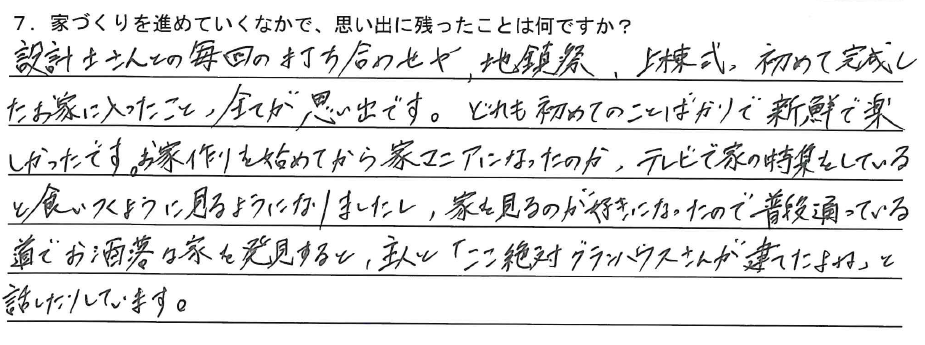 7．家づくりを進めていくなかで、思い出に残ったことは何ですか？
設計士さんとの毎回の打ち合わせや、地鎮祭、上棟式、初めて完成し
たお家に入ったこと、全てが思い出です。どれも初めてのことばかりで新鮮で楽
しかったです。お家作りを始めてから家マニアになったのか、テレビで家の特集をしている
と食いつくように見るようになりましたし、家を見るのが好きになったので普段通っている
道でお洒落な家を発見すると、主人と「ここ絶対グランハウスさんが建てたよね」と
話したりしています。